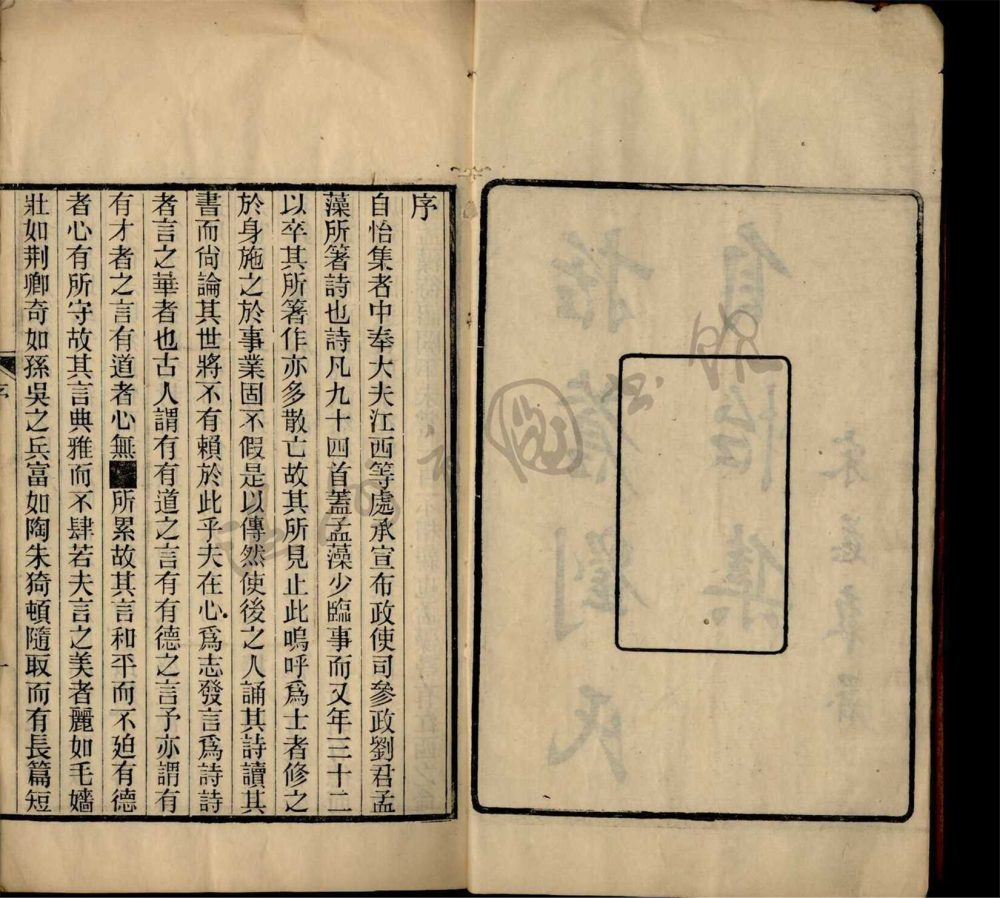 序
自怡集者中奉大夫江西等處承宣布政使司參政劉君孟
藻所著詩也詩凡九十四首蓋孟藻少臨事而又年三十二
以卒其所著作亦多散亡故其所見止此嗚呼爲士者修之
於身施之於事業固不假是以傳然使後之人誦其詩讀其
書而尙論其世將不有賴於此乎夫在心爲志發言爲詩詩
者言之華者也古人謂有有道之言有有德之言予亦謂有
有才者之言有道者心無所累故其言和平而不迫有德
者心有所守故其言典雅而不肆若夫言之美者麗如毛嬙
壯如荆卿奇如孫吳之兵富如陶朱猗頓隨取而有長篇短
序
一